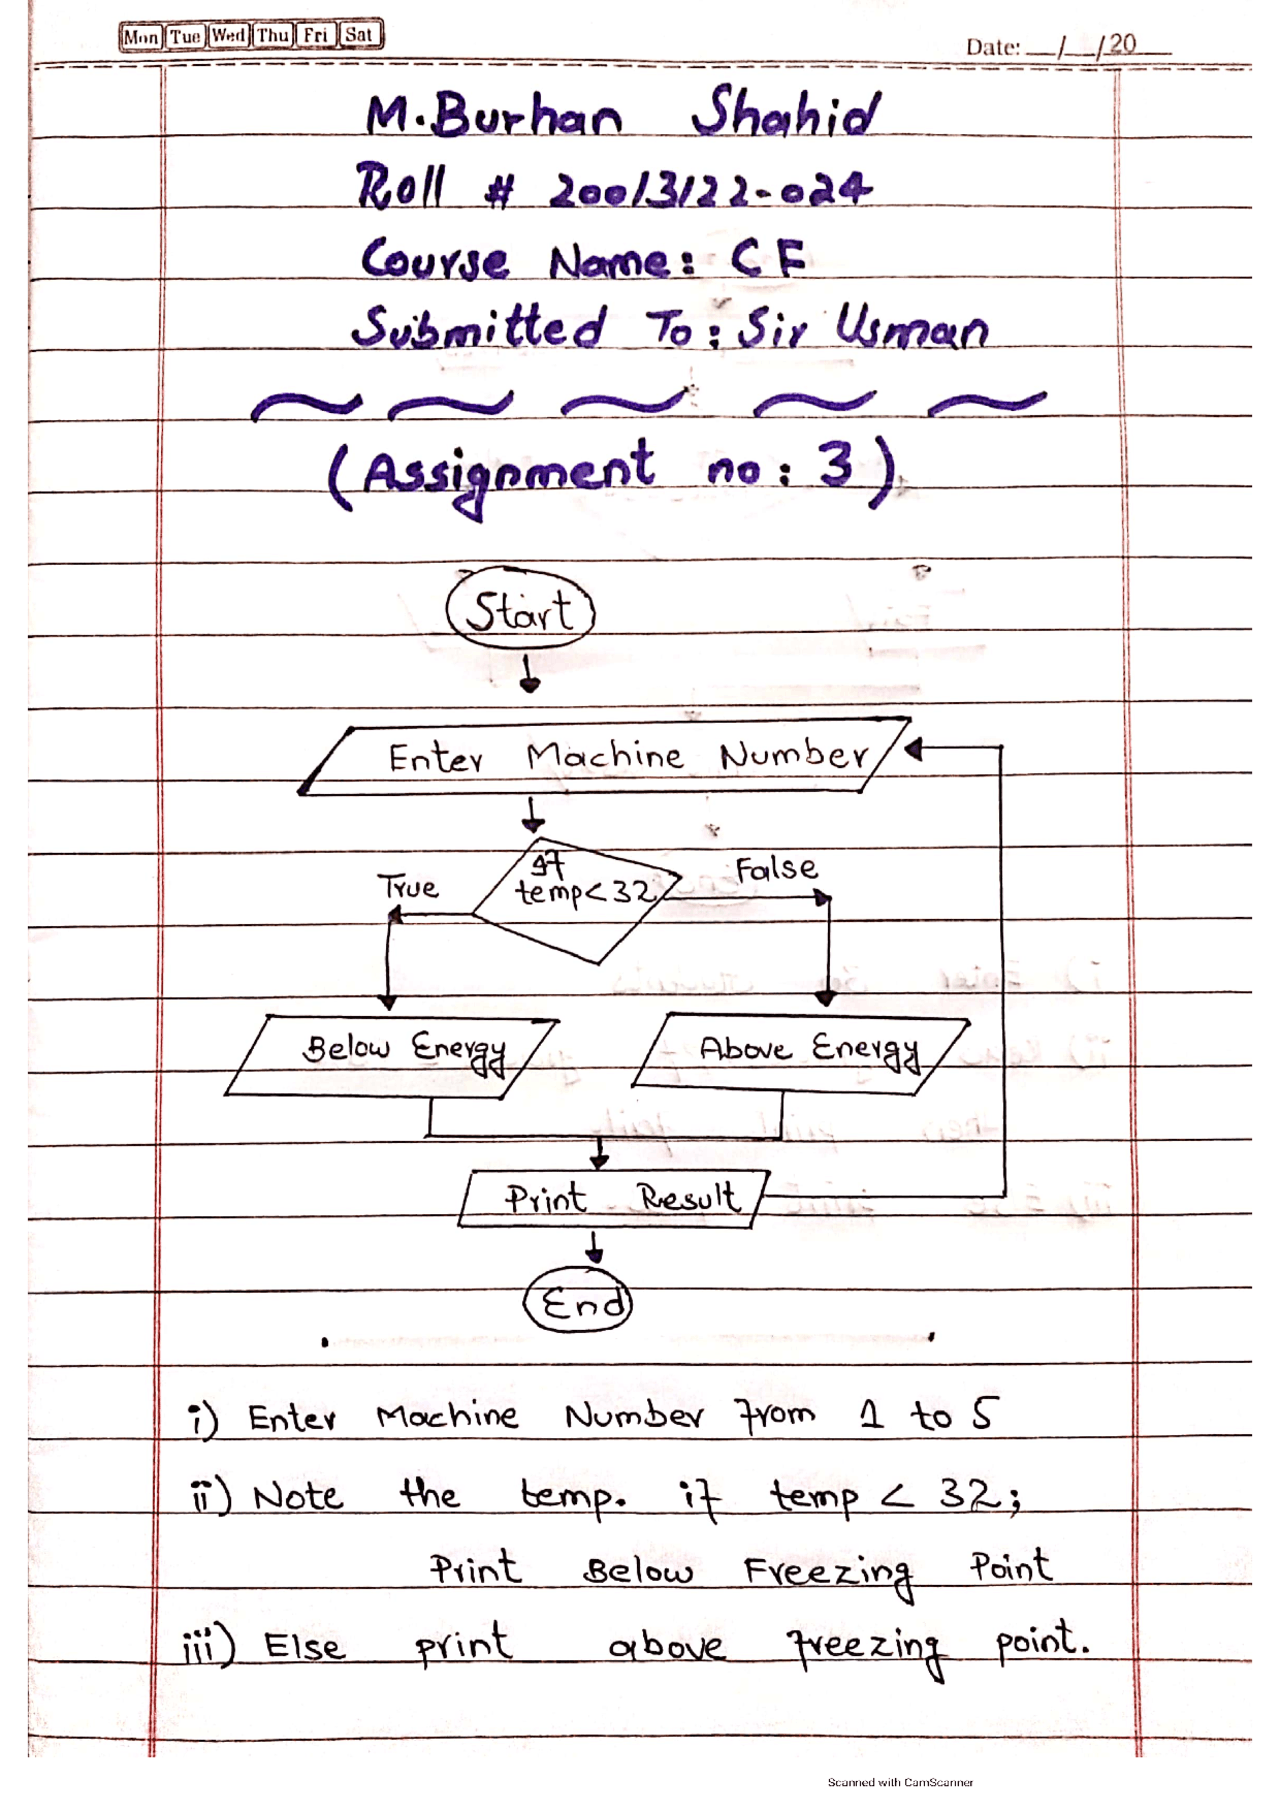 Mon Tue Wed Thu Fri Sat
Date: __/__/20__
M.Burhan Shahid
Roll # 20013122-024
Course Name: CF
Submitted To: Sir Usman
(Assignment no: 3)
Start
Enter Machine Number
If
temp<32
True
False
Below Energy
Above Energy
Print Result
End
i) Enter Machine Number from 1 to 5
ii) Note the temp. if temp < 32;
Print Below Freezing Point
iii) Else print above freezing point.
Scanned with CamScanner